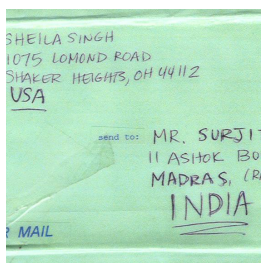 SHEILA SINGH
1075 LOMOND ROAD
SHAKER HEIGHTS, OH 44112
USA
send to: MR. SURJIT
11 ASHOK BO
MADRAS, (RA
INDIA
MAIL